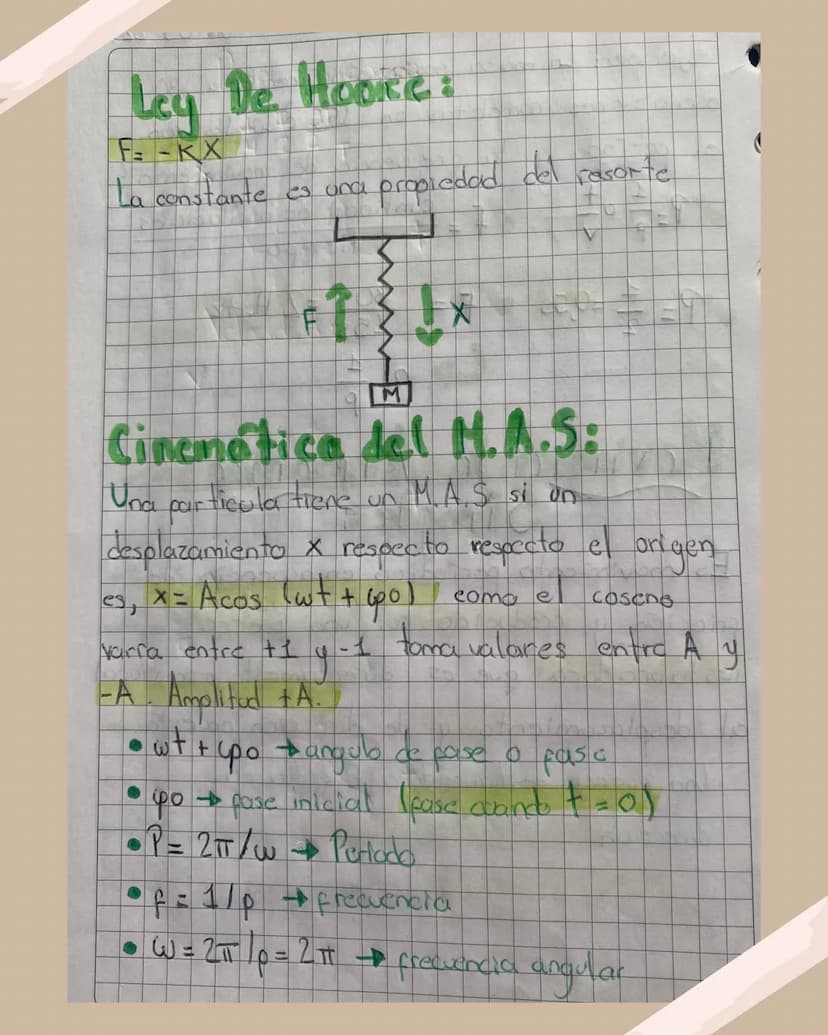 Ley De Hooke:
F= -KX
La constante es una propiedad del resorte
F X
M
Cinemática del M.A.S:
Una particula tiene un M.A.S si un
desplazamiento x respecto respecto el origen
es, x= Acos (wt + φo) como el coseno
varia entre +1 y -1 toma valores entre A y
-A. Amplitud +A.
• wt + φo → angulo de fase o fase
• φo → fase inicial (fase cuando t = 0)
• P= 2π/w → Periodo
• f = 1/p → frecuencia
• W = 2π/p = 2π → frecuencia angular